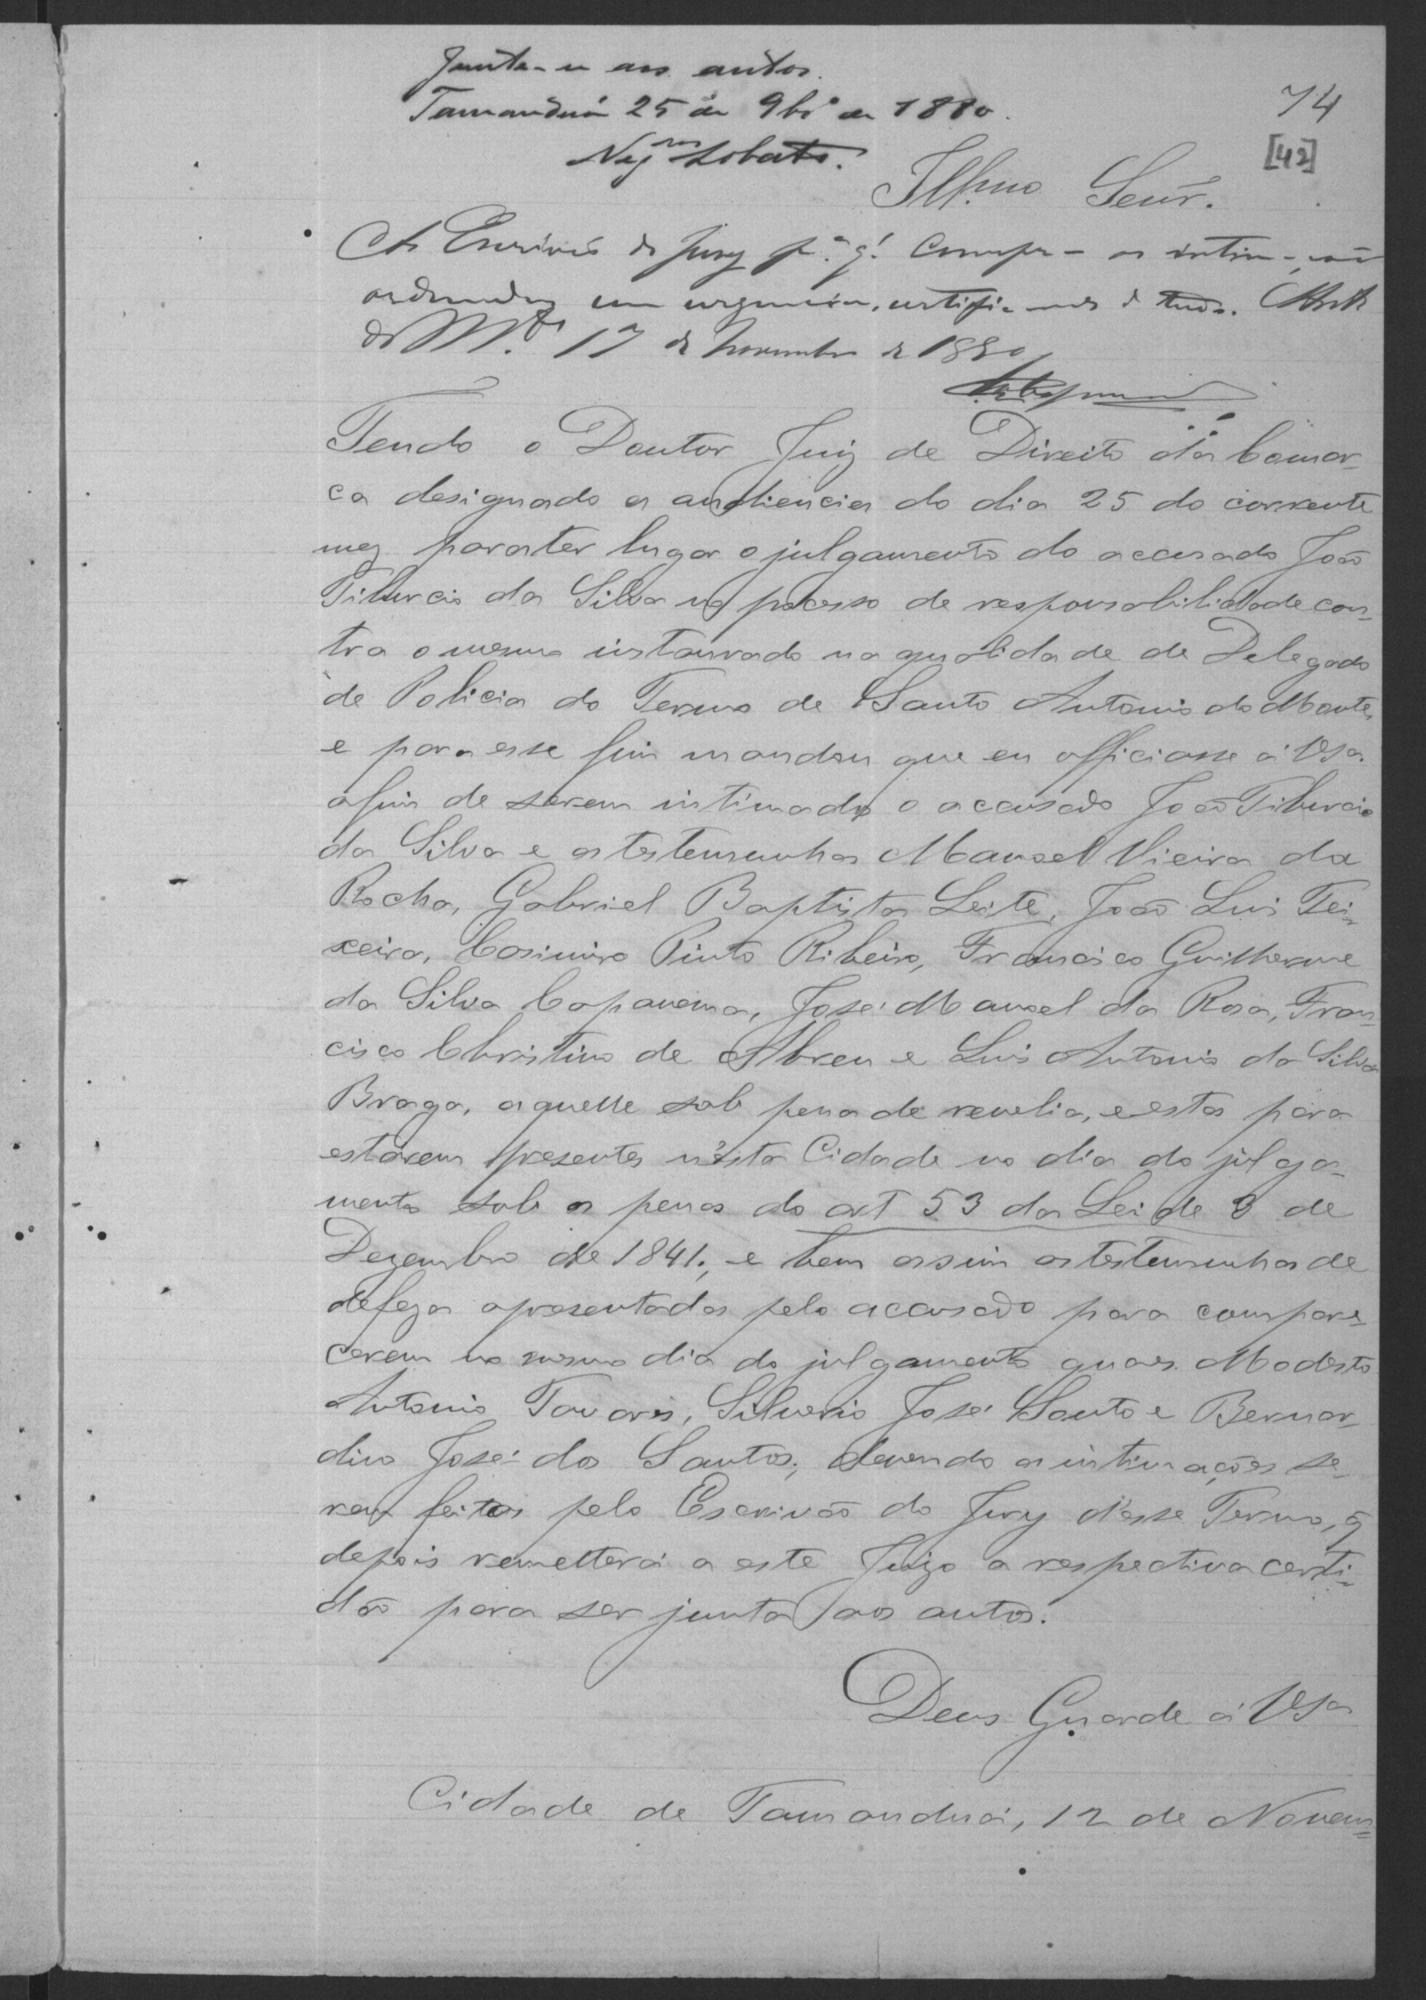 Junte-se aos autos.
Tamanduá 25 de 9bro de 1880.
74
[42]
Lobato.
Illmo Senr.
Ao Escrivão do Jury pa. q. cumpra as intimações
ordenadas com urgencia, certificando de tudo. Sto
Anto do M.te 17 de Novembro de 1880
Tendo o Doutor Juiz de Direito da Comar-
ca designado a audiencia do dia 25 do corrente
mez para ter lugar o julgamento do accusado João
Tiburcio da Silva no processo de responsabilidade con-
tra o mesmo instaurado na qualidade de Delegado
de Policia do Termo de Santo Antonio do Monte,
e para esse fim mandou que eu officiasse á VSa.
afim de serem intimado o accusado João Tiburcio
da Silva e as testemunhas Manoel Vieira da
Rocha, Gabriel Baptista Leite, João Luis Tei-
xeira, Casimiro Pinto Ribeiro, Francisco Guilherme
da Silva Capanema, José Manoel da Rosa, Fran-
cisco Christino de Abreu e Luis Antonio da Silva
Braga, aquelle sob pena de revelia, e estas para
estarem presentes nésta Cidade no dia do julga-
mento sob as penas do art 53 da Lei de 3 de
Dezembro de 1841; e bem assim as testemunhas de
defeza apresentadas pelo accusado para compare-
cerem no mesmo dia do julgamento quaes Modesto
Antonio Tavares, Silverio José Souto e Bernar-
dino José dos Santos; devendo as intimações se-
rem feitas pelo Escrivão do Jury d'esse Termo, q̃
depois remetterá a este Juizo a respectiva certi-
dão para ser junta aos autos.
Deus Guarde á VSa
Cidade de Tamanduá, 12 de Novem=